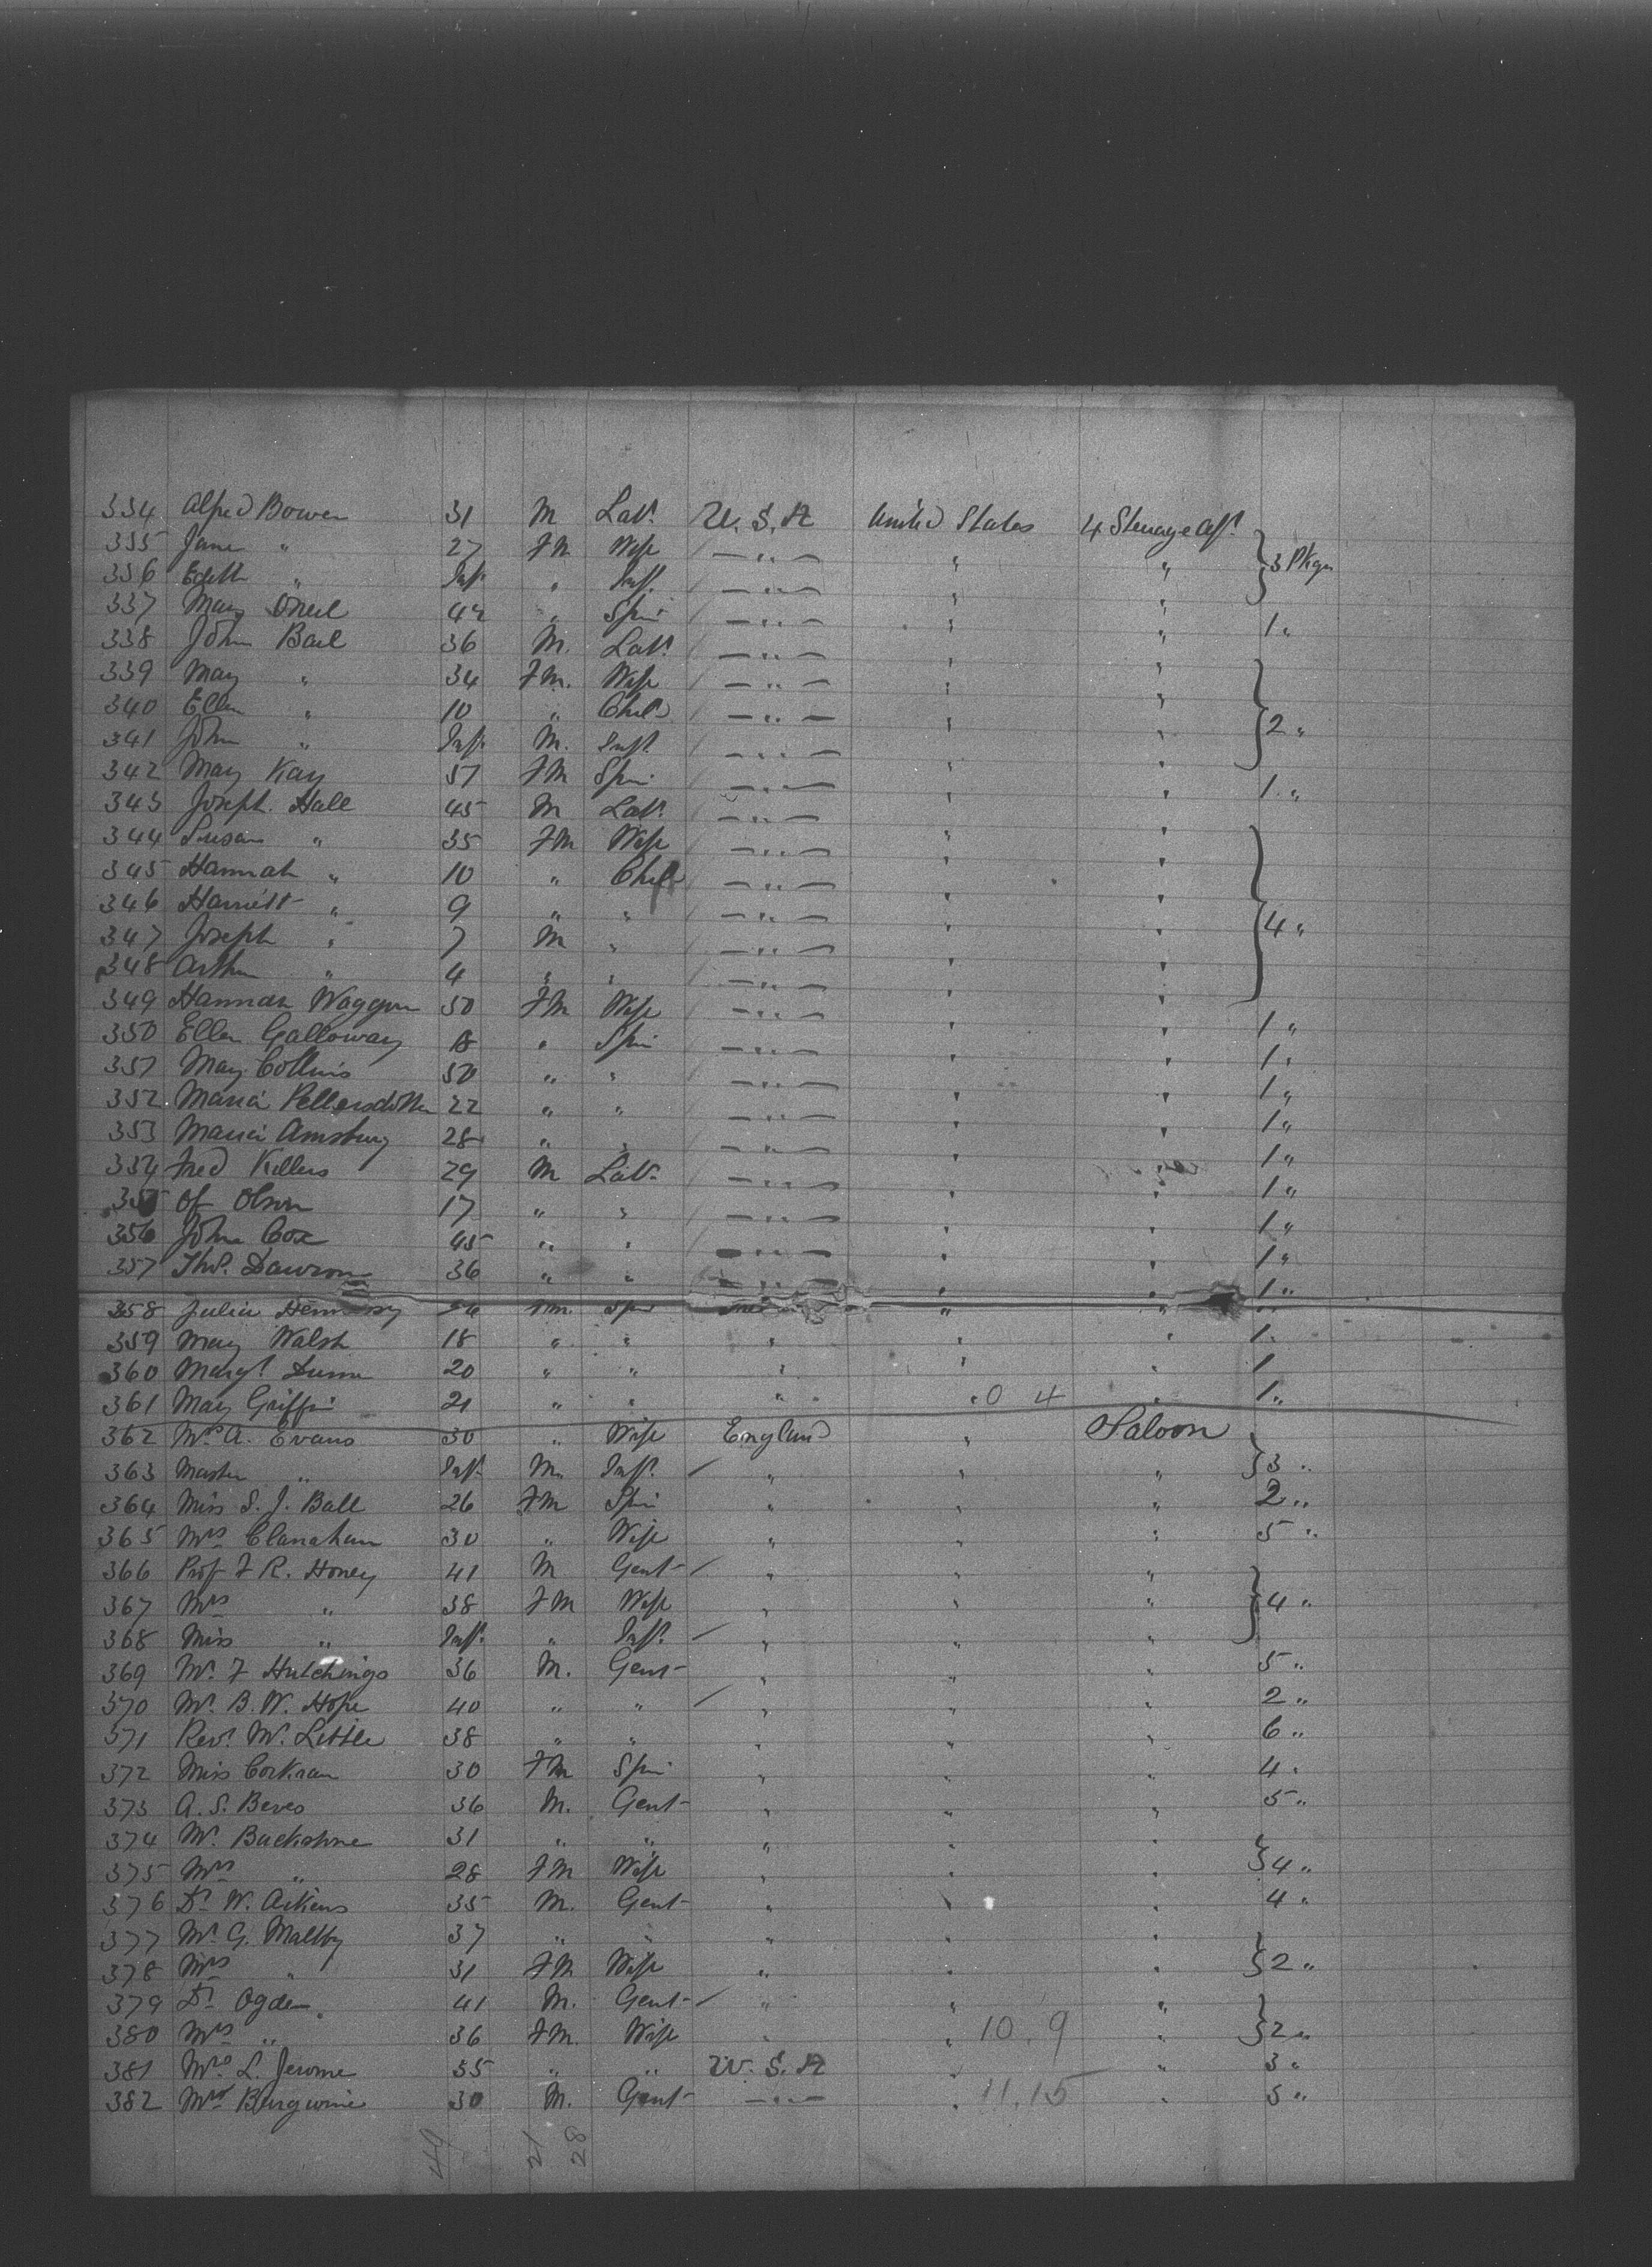 334 Alfred Bowen 31 M Lab. U.S.A United States 4 Steerage Aft.
335 Jane " 27 FM Wife — " — " " } 3 Pkgs
336 Edith " Inf. " Inf. — " — " "
337 Mary Oneil 42 " Spin — " — " " 1 "
338 John Bail 36 M. Lab. — " — " "
339 Mary " 34 FM. Wife — " — " "
340 Ellen " 10 " Child — " — " " } 2 "
341 John " Inf. M. Inft. — " — " "
342 Mary Kay 57 FM Spin — " — " " 1 "
343 Joseph Hall 45 M Lab. — " — " "
344 Susan " 35 FM Wife — " — " "
345 Hannah " 10 " Child — " — " "
346 Harriett " 9 " " — " — " " } 4 "
347 Joseph " 7 M " — " — " "
348 Arthur " 4 " " — " — " "
349 Hannah 50 FM Wife — " — " " 1 "
350 Ellen Galloway 18 " Spin — " — " " 1 "
351 Mary Collins 50 " " — " — " " 1 "
352 Maria 22 " " — " — " " 1 "
353 Maria Amsbury 28 " " — " — " " 1 "
354 Fred 29 M Lab. — " — " " 1 "
355 Of Olson 17 " " — " — " " 1 "
356 John Cox 45 " " — " — " " 1 "
357 Thos. Dawson 36 " " — " — " " 1 "
358 Julia Hennessy Spin " "
359 Mary Walsh 18 " " " " " 1 "
360 Margt. Dunn 20 " " " " " 1
361 Mary Griffin 21 " " " " 0 4 " 1 "
362 Mrs A. Evans 30 " Wife England " Saloon
363 Master " Inf. M. Inft. " " " } 3 "
364 Miss S. J. Ball 26 FM Spin " " " 2 "
365 Mrs Clanahan 30 " Wife " " " 5 "
366 Prof F R. Honey 41 M Gent " " "
367 Mrs " 38 FM Wife " " " } 4 "
368 Miss " Inft. " Inft. " " "
369 Mr. F Hutchings 36 M. Gent " " " 5 "
370 Mr. B. W. Hope 40 " " " " " 2 "
371 Revd. W. Little 38 " " " " " 6 "
372 Miss Corkran 30 FM Spin " " " 4 "
373 A. S. Beves 36 M. Gent " " " 5 "
374 Mr. 31 " " " " "
375 Mrs " 28 FM Wife " " " } 4 "
376 Dr W. Aikens 35 M. Gent " " " 4 "
377 Mr G. Maltby 37 " " " " "
378 Mrs " 31 FM Wife " " " } 2 "
379 Dr Ogden 41 M. Gent " " "
380 Mrs " 36 FM. Wife " " 10.9 " } 2 "
381 Mrs L. Jerome 35 " " U.S.A " " 3 "
382 Mr Burgwine 30 M. Gent — " — " 11.15 " 5 "
49 21 28